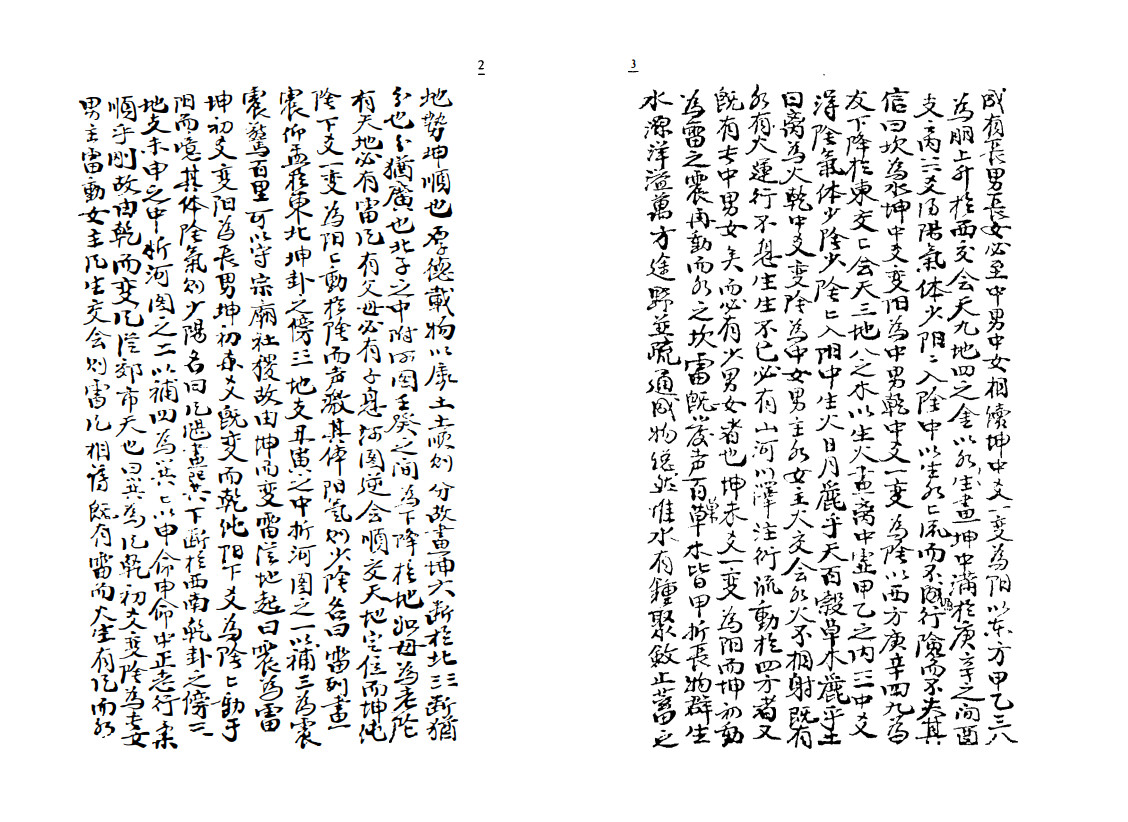 2
地勢坤順也厚德載物以廣土土順則分故畫坤六斷於北☷斷猶
分也分猶廣也北子之中附河图壬癸之间為下降於地號母為老陰
有天地必有雷風有父母必有子息河图逆会順交天地定位而坤純
陰下爻一变為阳〻動於陰而声發其体阳氣則少陰名曰雷列畫
震仰盂於東北坤卦之傍☳地支丑寅之中折河图之一以補三為震
震驚百里可以守宗廟社稷故由坤而变雷從地起曰震為雷
坤初爻变阳為長男坤初爻既变而乾純阳下爻為陰〻動于
阳而境其体陰氣則少陽名曰風畫巽下斷於西南乾卦之傍☴
地支未申之中折河图之二以補四為巽〻以申命申命中正志行柔
順乎剛故由乾而变風從郊市天也曰巽為風乾初爻变陰為長女
男主雷動女主風生交会則雷風相薄既有雷而火生有風而水
3
成有長男長女必至中男中女相續坤中爻一变為阳以东方甲乙三八
為朋上升於西交会天九地四之金以水生畫坤中滿於庚辛之间酉
支☵丙三爻阳陽氣体少阳〻入陰中以生水〻流而不盈行險而不失其
信曰坎為水坤中爻变阳為中男乾中爻一变為陰以西方庚辛四九為
友下降於東交〻会天三地八之木以生火畫离中虛甲乙之内☲中爻
得陰氣体少陰少陰〻入阳中生火日月麗乎天百穀草木麗乎土
曰离為火乾中爻变陰為中女男主水女主火交会水火不相射既有
水有火運行不息生生不已必有山河以澤注衍流動於四方者又
既有長中男女矣而必有少男女者也坤末爻一变為阳而坤初動
為雷之震再動而水之坎雷既發声百果草木皆甲折長物群生
水源洋溢萬方途野並疏通成物総然惟水有鍾聚斂止蓄之